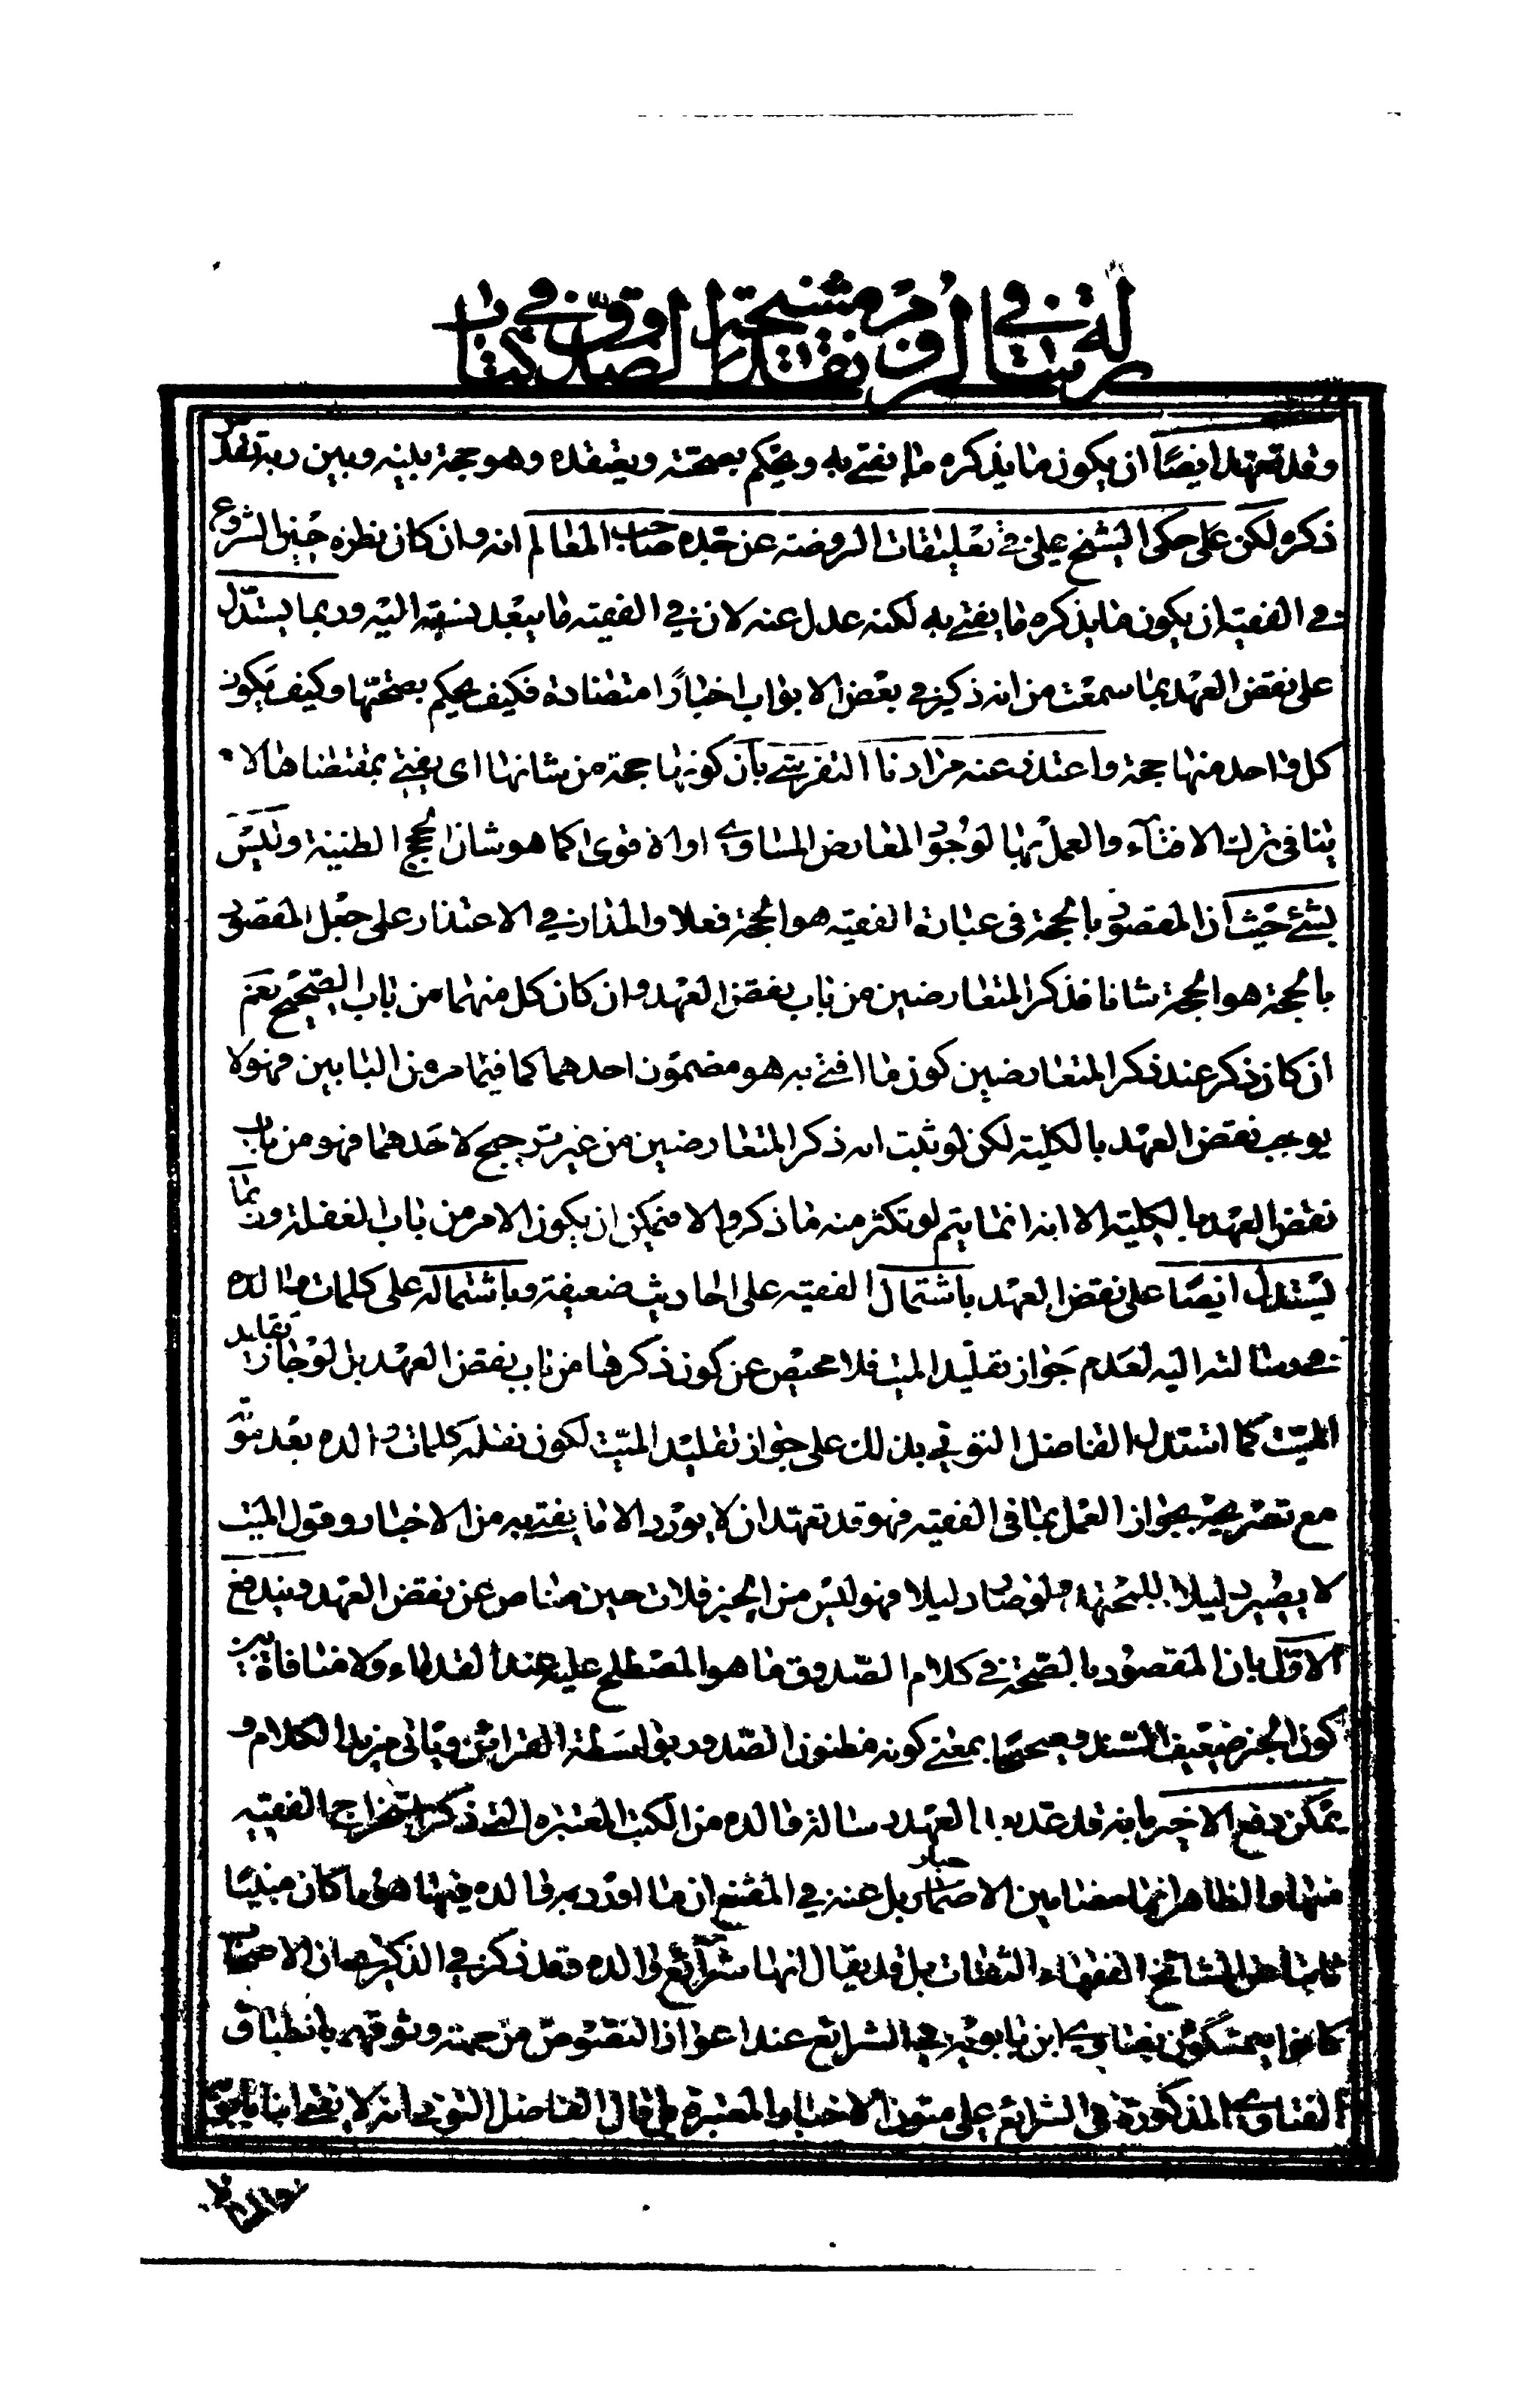 رسالة في لزوم نقد مشيخة الصدوق في كتاب
وقد تعهد ايضًا ان يكون ما يذكره ما يفتى به ويحكم بصحته ويعتقده وهو حجة بينه وبين ربه تقدس
ذكره لكن على حكى الشيخ على في تعليقات الروضة عن جده صاحب المعالم انه وان كان نظره حين الشروع
في الفقيه ان يكون ما يذكره ما يفتى به لكنه عدل عنه لان في الفقيه ما يبعد نسبته اليه وربما يستدل
على نقض العهد بما سمعت من انه ذكر في بعض الابواب اخبارًا متضادة فكيف يحكم بصحتها وكيف يكون
كل واحد منها حجة واعتذر عنه مرادنا التفريشي بان كونها حجة من شانها اى يفتى بمقتضاها لا
ينافى ترك الافتاء والعمل بها لوجود المعارض المساوى او الاقوى كما هو شان الحجج الظنية وليس
بشئ حيث ان المقصود بالحجة فى عبارة الفقيه هو الحجة فعلا والمدار في الاعتذار على جعل المقصود
بالحجة هو الحجة شانا فذكر المتعارضين من باب نقض العهد وان كان كل منهما من باب الصحيح نعم
ان كان ذكر عند ذكر المتعارضين كون ما افتى به هو مضمون احدهما كما فيما مر من البابين فهو لا
يوجب نقض العهد بالكلية لكن لو ثبت انه ذكر المتعارضين من غير ترجيح لاحدهما فهو من باب
نقض العهد بالكلية الا انه انما يتم لو تكثر منه ما ذكر والا فيمكن ان يكون الامر من باب الغفلة وربما
يستدل ايضًا على نقض العهد باشتمال الفقيه على احاديث ضعيفة وباشتماله على كلمات والده
في رسالته اليه لعدم جواز تقليد الميت فلا محيص عن كون ذكرها من باب نقض العهد بل لو جاز تقليد
الميت كما استدل الفاضل التوني بذلك على جواز تقليد الميت لكون نقله كلمات والده بعد موته
مع تصريحه بجواز العمل بما فى الفقيه فهو قد تعهد ان لا يورد الا ما يفتى به من الاخبار وقول الميت
لا يصير دليلا للمجتهد ولو صار دليلا فهو ليس من الخبر فلات حين مناص عن نقض العهد ويندفع
الاول بان المقصود بالصحة في كلام الصدوق ما هو المصطلح عليه عند القدماء ولا منافاة بين
كون الخبر ضعيف السند وصحيحًا بمعنى كونه مظنون الصدور بواسطة القرائن وياتى مزيد الكلام و
يمكن دفع الاخير بانه قد عد العهد رسالة والده من الكتب المعتبره التى ذكر استخراج الفقيه
منها والظاهر انها مضامين الاخبار بل عنه في المقنع ان ما اورد به والده فيها هو ما كان مبنيًا
ثابتا عن المشائخ الفقهاء الثقات بل قد يقال انها شرائع والده فقد ذكر في الذكرى ان الاصحاب
كانوا يتمسكون بفتاوى ابن بابويه في الشرائع عند اعواز النصوص من جهة وثوقهم بانطباق
الفتاوى المذكورة فى الشرائع على متون الاخبار المعتبرة بل قال الفاضل التوني انه لا يفتى ابنا بابويه